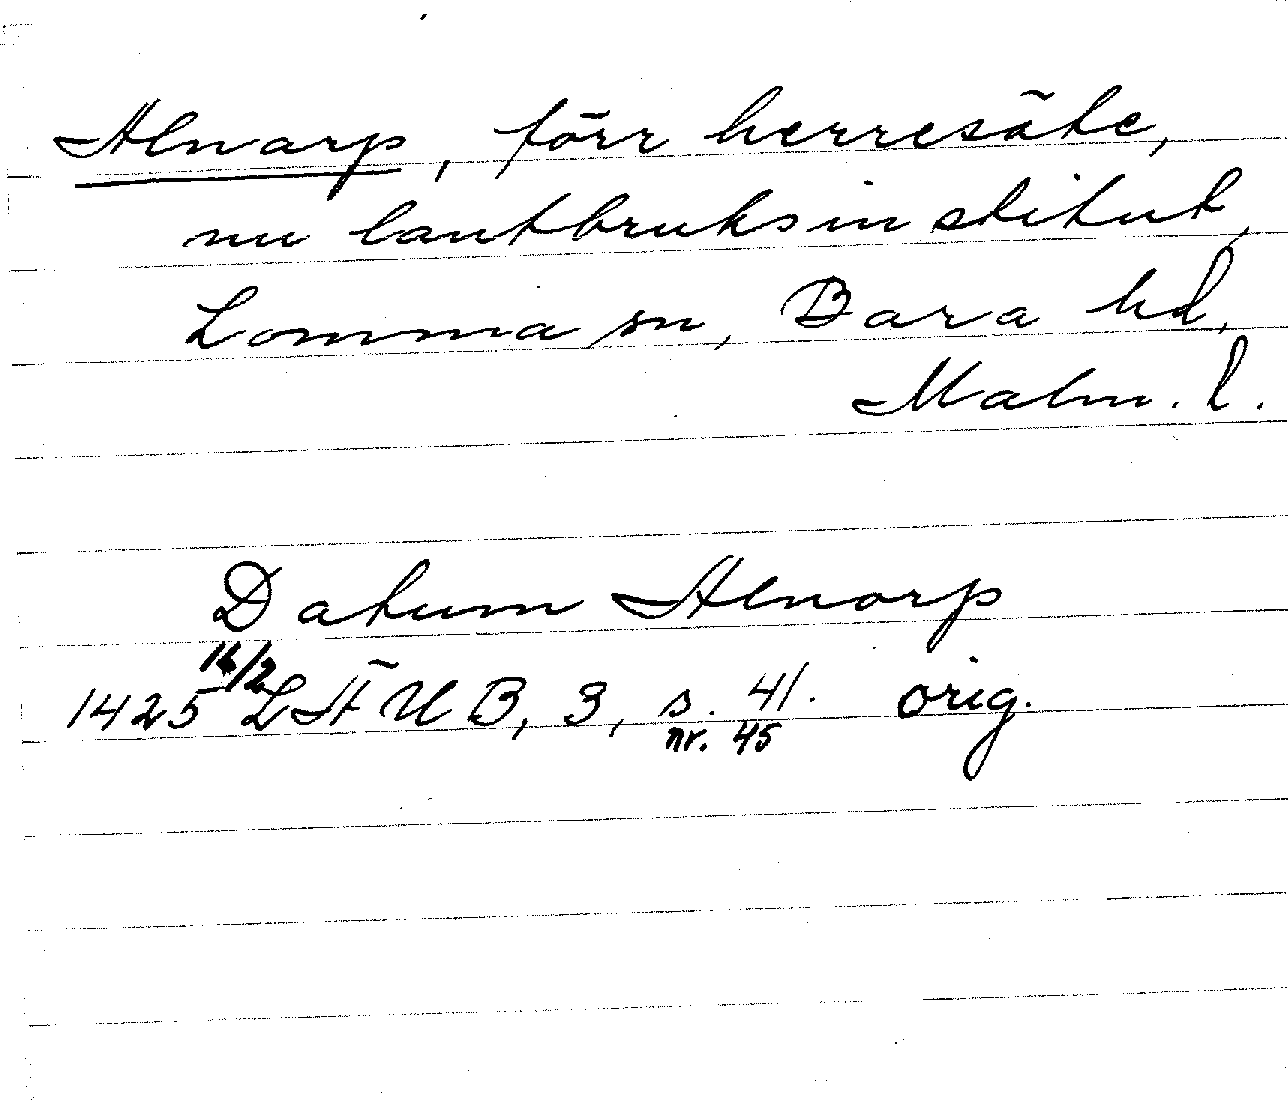 Alnarp, förr herresäte,
nu lantbruksinstitut,
Lomma sn, Bara hd,
Malm. l.
Datum Alnorp
1425 16/2 LÄUB, 3, s. 41. orig.
nr. 45